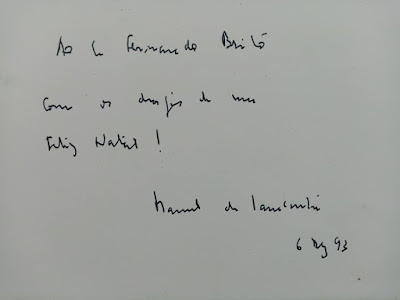 Ao Sr Fernando Brito
Com os desejos de um
Feliz Natal!
Manuel de
6 Dez 93